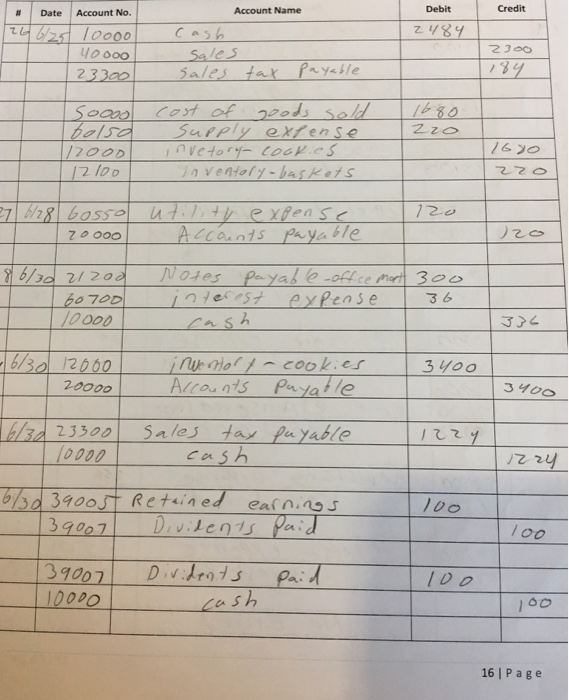 # Date Account No. Account Name Debit Credit
26 6/25 10000 Cash 2484
40000 Sales 2300
23300 Sales tax Payable 184
50000 cost of goods sold 1680
60150 Supply expense 220
12000 invetory-cookies 1680
12100 inventory-baskets 220
27 6/28 60550 utility expense 120
20000 Accounts payable 120
8 6/30 21200 Notes payable-office mart 300
60700 interest expense 36
10000 cash 336
6/30 12000 inventory-cookies 3400
20000 Accounts Payable 3400
6/30 23300 Sales tax payable 1224
10000 cash 1224
6/30 39005 Retained earnings 100
39007 Dividents Paid 100
39007 Dividents Paid 100
10000 cash 100
16 | Page